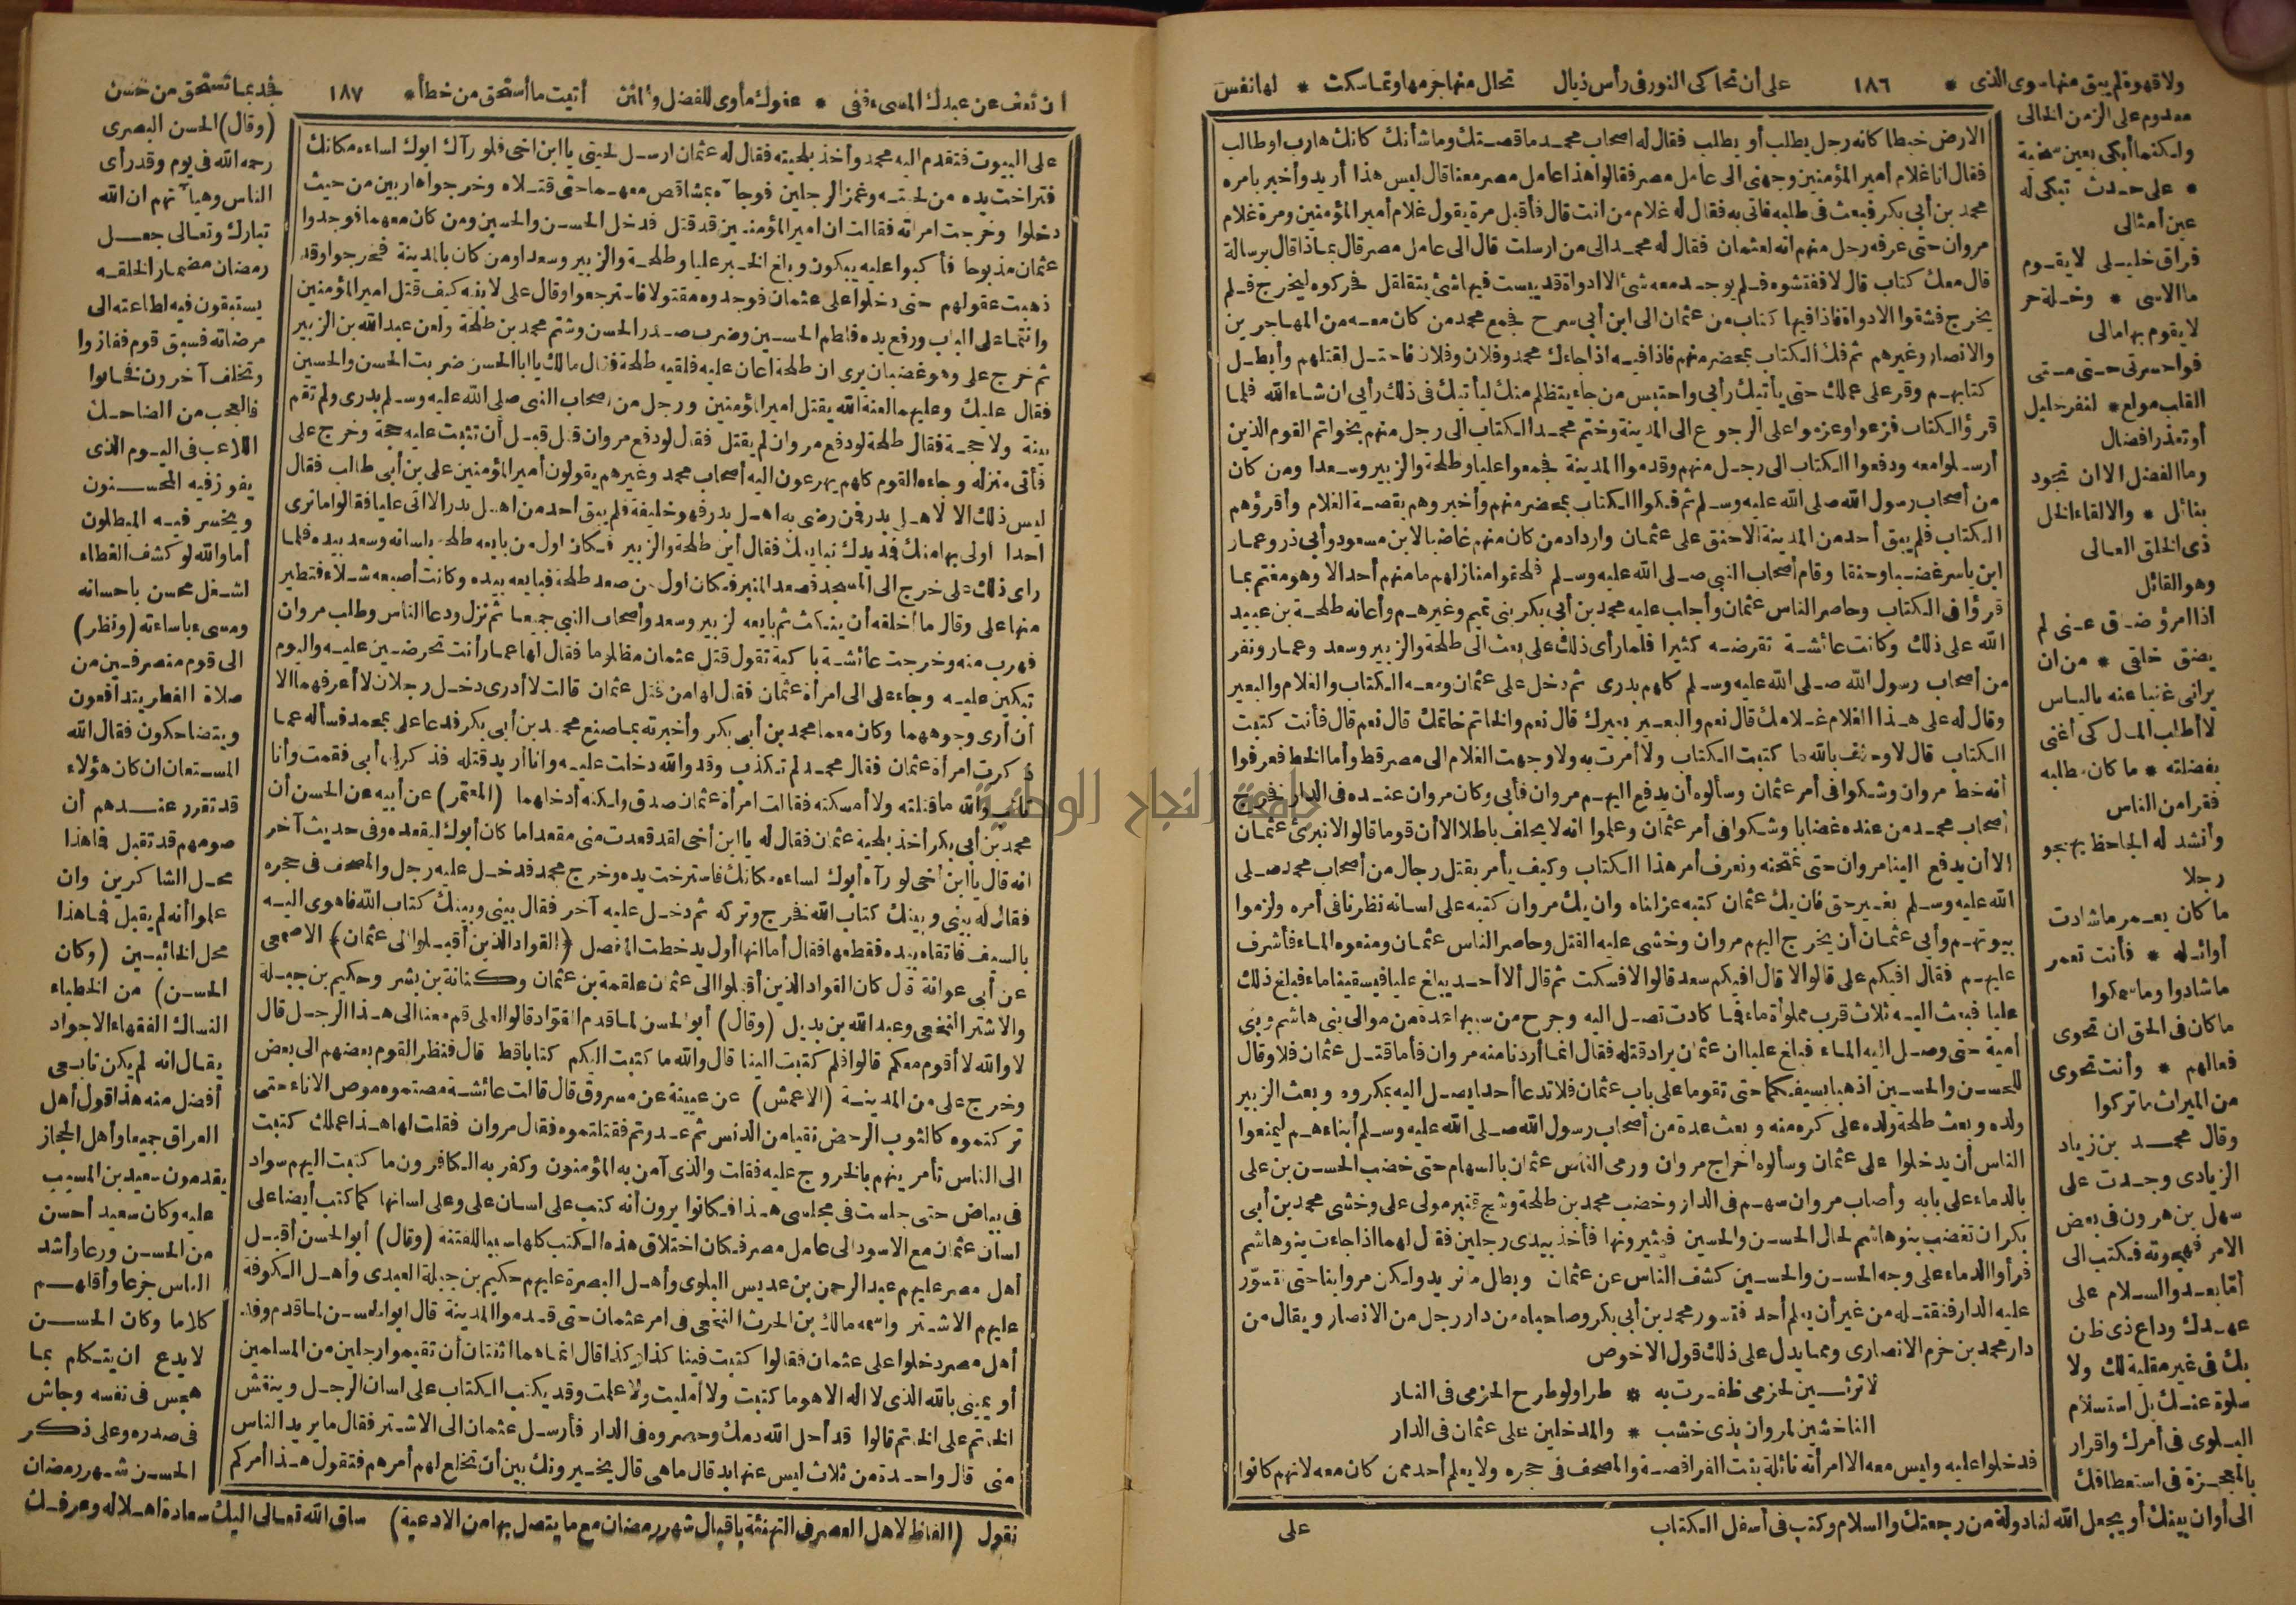 ولا قهوة لم يبق منها سوى الذى * ١٨٦ على أن تحاكى النور فى رأس ذيال تحال منها جرمها وتماسكت * لها نفس
معدوم على الزمن الخالى
ولكنما أبكى بعين سخينة
* على حدث تبكى له
عين أمثالى
فراق خليلى لا يقوم
ما الاسى * وخلة حر
لا يقوم بها مالى
فواحسرتى حتى متى
القلب موجع * لفقد خليل
أو تعذر افضال
وما الفضل الا ان تجود
بنائل * والا لقاء الخل
ذى الخلق العالى
وهو القائل
اذا امرؤ ضاق عنى لم
يضق خلقى * من ان
يرانى غنيا عنه بالياس
لا أطلب المال كى أغنى
بفضلته * ما كان مطلبه
فقرا من الناس
وأنشد له الجاحظ يهجو
رجلا
ما كان يعمر ما شادت
أوائله * فأنت تعمر
ما شادوا وما سمكوا
ما كان فى الحق ان تحوى
فعالهم * وأنت تحوى
من الميراث ما تركوا
وقال محمد بن زياد
الزيادى وجدت على
سهل بن هرون فى بعض
الامر فهجوته فكتب الى
أما بعد والسلام على
عهدك وداع ذى ظن
بك فى غير مقلية لك ولا
سلوة عنك بل استسلام
البلوى فى أمرك واقرار
بالمعجزة فى استعطافك
الى أوان بيتك أو يجعل الله لنا دولة من رجعتك والسلام وكتب فى أسفل الكتاب
الارض خبطا كانه رجل يطلب أو يطلب فقال له اصحاب محمد ما قصتك وما شأنك كانك هارب او طالب
فقال انا غلام أمير المؤمنين وجهنى الى عامل مصر فقالوا هذا عامل مصر معنا قال ليس هذا أريد وأخبر بامره
محمد بن أبى بكر فبعث فى طلبه فاتى به فقال له غلام من انت قال فأقبل مرة يقول غلام أمير المؤمنين ومرة غلام
مروان حتى عرفه رجل منهم انه لعثمان فقال له محمد الى من ارسلت قال الى عامل مصر قال بماذا قال برسالة
قال معك كتاب قال لا ففتشوه فلم يوجد معه شئ الا ادواة قد يبست فيها شئ يتقلقل فحركوه ليخرج فلم
يخرج فشقوا الادواة فاذا فيها كتاب من عثمان الى ابن أبى سرح فجمع محمد من كان معه من المهاجرين
والانصار وغيرهم ثم فك الكتاب بمحضر منهم فاذا فيه اذا جاءك محمد وفلان وفلان فاحتل لقتلهم وأبطل
كتابهم وقر على عملك حتى يأتيك رأيى واحتبس من جاء يتظلم منك ليأتيك فى ذلك رأيى ان شاء الله فلما
قرؤا الكتاب فزعوا وعزموا على الرجوع الى المدينة وختم محمد الكتاب الى رجل منهم بخواتم القوم الذين
أرسلوا معه ودفعوا الكتاب الى رجل منهم وقدموا المدينة فجمعوا عليا وطلحة والزبير وسعدا ومن كان
من أصحاب رسول الله صلى الله عليه وسلم ثم فكوا الكتاب بمحضر منهم وأخبروهم بقصة الغلام وأقرؤهم
الكتاب فلم يبق أحد من المدينة الا حنق على عثمان وازداد من كان منهم غاضبا لابن مسعود وأبى ذر وعمار
ابن ياسر غضبا وحنقا وقام أصحاب النبى صلى الله عليه وسلم فلحقوا منازلهم ما منهم أحد الا وهو مغتم بما
قرؤا فى الكتاب وحاصر الناس عثمان وأجلب عليه محمد بن أبى بكر بنى تميم وغيرهم وأعانه طلحة بن عبيد
الله على ذلك وكانت عائشة تقرضه كثيرا فلما رأى ذلك على بعث الى طلحة والزبير وسعد وعمار ونفر
من أصحاب رسول الله صلى الله عليه وسلم كلهم بدرى ثم دخل على عثمان ومعه الكتاب والغلام والبعير
وقال له على هذا الغلام غلامك قال نعم والبعير بعيرك قال نعم والخاتم خاتمك قال نعم قال فأنت كتبت
الكتاب قال لا وحلف بالله ما كتبت الكتاب ولا أمرت به ولا وجهت الغلام الى مصر قط وأما الخط فعرفوا
أنه خط مروان وشكوا فى أمر عثمان وسألوه أن يدفع اليهم مروان فأبى وكان مروان عنده فى الدار فخرج
أصحاب محمد من عنده غضابا وشكوا فى أمر عثمان وعلموا انه لا يحلف باطلا الا أن قوما قالوا لا نبرئ عثمان
الا أن يدفع الينا مروان حتى نمتحنه ونعرف أمر هذا الكتاب وكيف يأمر بقتل رجال من أصحاب محمد صلى
الله عليه وسلم بغير حق فان يك عثمان كتبه عزلناه وان يك مروان كتبه على لسانه نظرنا فى أمره ولزموا
بيوتهم وأبى عثمان أن يخرج اليهم مروان وخشى عليه القتل وحاصر الناس عثمان ومنعوه الماء فأشرف
عليهم فقال افيكم على قالوا لا قال افيكم سعد قالوا لا فسكت ثم قال ألا أحد يبلغ عليا فيسقينا ماء فبلغ ذلك
عليا فبعث اليه ثلاث قرب مملوأة ماء فما كادت تصل اليه وجرح من سببها عدة من موالى بنى هاشم وبنى
أمية حتى وصل اليه الماء فبلغ عليا ان عثمان يراد قتله فقال انما أردنا منه مروان فأما قتل عثمان فلا وقال
للحسن والحسين اذهبا بسيفكما حتى تقوما على باب عثمان فلا تدعا أحدا يصل اليه بمكروه وبعث الزبير
ولده وبعث طلحة ولده على كره منه وبعث عدة من أصحاب رسول الله صلى الله عليه وسلم أبناءهم ليمنعوا
الناس أن يدخلوا على عثمان وسألوه اخراج مروان ورمى الناس عثمان بالسهام حتى خضب الحسن بن على
بالدماء على بابه وأصاب مروان سهم فى الدار وخضب محمد بن طلحة وشج قنبر مولى على وخشى محمد بن أبى
بكر ان تغضب بنو هاشم لحال الحسن والحسين فيثيرونها فأخذ بيدى رجلين فقال لهما اذا جاءت بنو هاشم
فرأوا الدماء على وجه الحسن والحسين كشف الناس عن عثمان وبطل ما نريد ولكن مروا بنا حتى نتسور
عليه الدار فنقتله من غير أن يعلم أحد فتسور محمد بن أبى بكر وصاحباه من دار رجل من الانصار ويقال من
دار محمد بن حزم الانصارى ومما يدل على ذلك قول الاخوص
لا ترثين لحزمى ظفرت به * طرا ولو طرح الحزمى فى النار
الناخشين لمروان بذى خشب * والمدخلين على عثمان فى الدار
فدخلوا عليه وليس معه الا امرأته نائلة بنت الفرافصة والمصحف فى حجره ولا يعلم أحد ممن كان معه لانهم كانوا
على
ان تعف عن عبدك المسىء ففى * عفوك مأوى للفضل والمنن أتيت ما أستحق من خطأ * ١٨٧ فجد بما تستحق من حسن
على البيوت فتقدم اليه محمد وأخذ بلحيته فقال له عثمان ارسل لحيتى يا ابن اخى فلو رآك ابوك لساءه مكانك
فتراخت يده من لحيته وغمز الرجلين فوجآه بمشاقص معهما حتى قتلاه وخرجوا هاربين من حيث
دخلوا وخرجت امرأته فقالت ان امير المؤمنين قد قتل فدخل الحسن والحسين ومن كان معهما فوجدوا
عثمان مذبوحا فأكبوا عليه يبكون وبلغ الخبر عليا وطلحة والزبير وسعدا ومن كان بالمدينة فخرجوا وقد
ذهبت عقولهم حتى دخلوا على عثمان فوجدوه مقتولا فاسترجعوا وقال على لابنيه كيف قتل امير المؤمنين
وانتما على الباب ورفع يده فلطم الحسين وضرب صدر الحسن وشتم محمد بن طلحة ولعن عبد الله بن الزبير
ثم خرج على وهو غضبان يرى ان طلحة اعان عليه فلقيه طلحة فقال مالك يا ابا الحسن ضربت الحسن والحسين
فقال عليك وعليهما لعنة الله يقتل امير المؤمنين ورجل من اصحاب النبى صلى الله عليه وسلم بدرى ولم تقم
بينة ولا حجة فقال طلحة لو دفع مروان لم يقتل فقال لو دفع مروان قتل قبل أن تثبت عليه حجة وخرج على
فأتى منزله وجاءه القوم كلهم يهرعون اليه أصحاب محمد وغيرهم يقولون أمير المؤمنين على بن أبى طالب فقال
ليس ذلك الا لاهل بدر فمن رضى به اهل بدر فهو خليفة فلم يبق احد من اهل بدر الا أتى عليا فقالوا ما نرى
احدا أولى بها منك فمد يدك نبايعك فقال أين طلحة والزبير فكان اول من بايعه طلحة بلسانه وسعد بيده فلما
راى ذلك على خرج الى المسجد فصعد المنبر فكان اول من صعد طلحة فبايعه بيده وكانت أصبعه شلاء فتطير
منها على وقال ما أخلقه أن ينكث ثم بايعه الزبير وسعد وأصحاب النبى جميعا ثم نزل ودعا الناس وطلب مروان
فهرب منه وخرجت عائشة باكية تقول قتل عثمان مظلوما فقال لها عمار أنت تحرضين عليه واليوم
تبكين عليه وجاء على الى امرأة عثمان فقال لها من قتل عثمان قالت لا أدرى دخل رجلان لا أعرفهما الا
أن أرى وجوههما وكان معهما محمد بن أبى بكر وأخبرته بما صنع محمد بن أبى بكر فدعا على بمحمد فسأله عما
ذكرت امرأة عثمان فقال محمد لم تكذب وقد والله دخلت عليه وانا اريد قتله فذكر لى أبى فقمت وأنا
تائب والله ما قتلته ولا أمسكته فقالت امرأة عثمان صدق ولكنه أدخلهما (المعتمر) عن أبيه عن الحسن أن
محمد بن أبى بكر أخذ بلحية عثمان فقال له يا ابن أخى لقد قعدت منى مقعدا ما كان أبوك ليقعده وفى حديث آخر
انه قال يا ابن أخى لو رآه أبوك لساءه مكانك فاسترخت يده وخرج محمد فدخل عليه رجل والمصحف فى حجره
فقال له بينى وبينك كتاب الله فخرج وتركه ثم دخل عليه آخر فقال بينى وبينك كتاب الله فاهوى اليه
بالسيف فاتقاه بيده فقطعها فقال أما انها أول يد خطت المفصل ﴿القواد الذين أقبلوا الى عثمان﴾ الاصمعى
عن أبى عوانة قال كان القواد الذين أقبلوا الى عثمان علقمة بن عثمان وكنانة بن بشر وحكيم بن جبلة
والاشتر النخعى وعبد الله بن بديل (وقال) أبو الحسن لما قدم القواد قالوا لعلى قم معنا الى هذا الرجل قال
لا والله لا أقوم معكم قالوا فلم كتبت الينا قال والله ما كتبت اليكم كتابا قط قال فنظر القوم بعضهم الى بعض
وخرج على من المدينة (الاعمش) عن عيينة عن مسروق قال قالت عائشة مصتموه موص الاناء حتى
تركتموه كالثوب الرحض نقيا من الدنس ثم عدوتم فقتلتموه فقال مروان فقلت لها هذا عملك كتبت
الى الناس تأمرينهم بالخروج عليه فقلت والذى آمن به المؤمنون وكفر به الكافرون ما كتبت اليهم سواد
فى بياض حتى جلست فى مجلسى هذا فكانوا يرون أنه كتب على لسان على وعلى لسانها كما كتب أيضا على
لسان عثمان مع الاسود الى عامل مصر فكان اختلاق هذه الكتب كلها سببا للفتنة (وقال) أبو الحسن أقبل
أهل مصر عليهم عبد الرحمن بن عديس البلوى وأهل البصرة عليهم حكيم بن جبلة العبدى وأهل الكوفة
عليهم الاشتر واسمه مالك بن الحرث النخعى فى امر عثمان حتى قدموا المدينة قال ابو الحسن لما قدم وفد
أهل مصر دخلوا على عثمان فقالوا كتبت فينا كذا وكذا قال انما هما اثنتان أن تقيموا رجلين من المسلمين
أو يمينى بالله الذى لا اله الا هو ما كتبت ولا أمليت ولا علمت وقد يكتب الكتاب على لسان الرجل وينقش
الخاتم على الخاتم قالوا قد أحل الله دمك وحصروه فى الدار فأرسل عثمان الى الاشتر فقال ما يريد الناس
منى قال واحدة من ثلاث ليس عنها بد قال ما هى قال يخيرونك بين أن تخلع لهم أمرهم فتقول هذا أمركم
(وقال) الحسن البصرى
رحمه الله فى يوم وقد رأى
الناس وهيآتهم ان الله
تبارك وتعالى جعل
رمضان مضمارا لخلقه
يستبقون فيه لطاعته الى
مرضاته فسبق قوم ففازوا
وتخلف آخرون فخابوا
فالعجب من الضاحك
اللاعب فى اليوم الذى
يفوز فيه المحسنون
ويخسر فيه المبطلون
أما والله لو كشف الغطاء
اشغل محسن باحسانه
ومسىء باساءته (ونظر)
الى قوم منصرفين من
صلاة الفطر يتدافعون
ويتضاحكون فقال الله
المستعان ان كان هؤلاء
قد تقرر عندهم أن
صومهم قد تقبل فما هذا
محل الشاكرين وان
علموا أنه لم يقبل فما هذا
محل الخائبين (وكان
الحسن) من الخطباء
النساك الفقهاء الاجواد
يقال انه لم يكن تابعى
أفضل منه هذا قول أهل
العراق جميعا وأهل الحجاز
يقدمون سعيد بن المسيب
عليه وكان سعيد أحسن
من الحسن ورعا وأشد
الناس جزعا وأقلهم
كلاما وكان الحسن
لا يدع ان يتكلم بما
هجس فى نفسه وجاش
فى صدره وعلى ذكر
الحسن شهر رمضان
نقول (الفاظ لاهل العصر فى التهنئة باقبال شهر رمضان مع ما يتصل بها من الادعية) ساق الله تعالى اليك سعادة اهلاله وعرفك
جامعة النجاح الوطنية